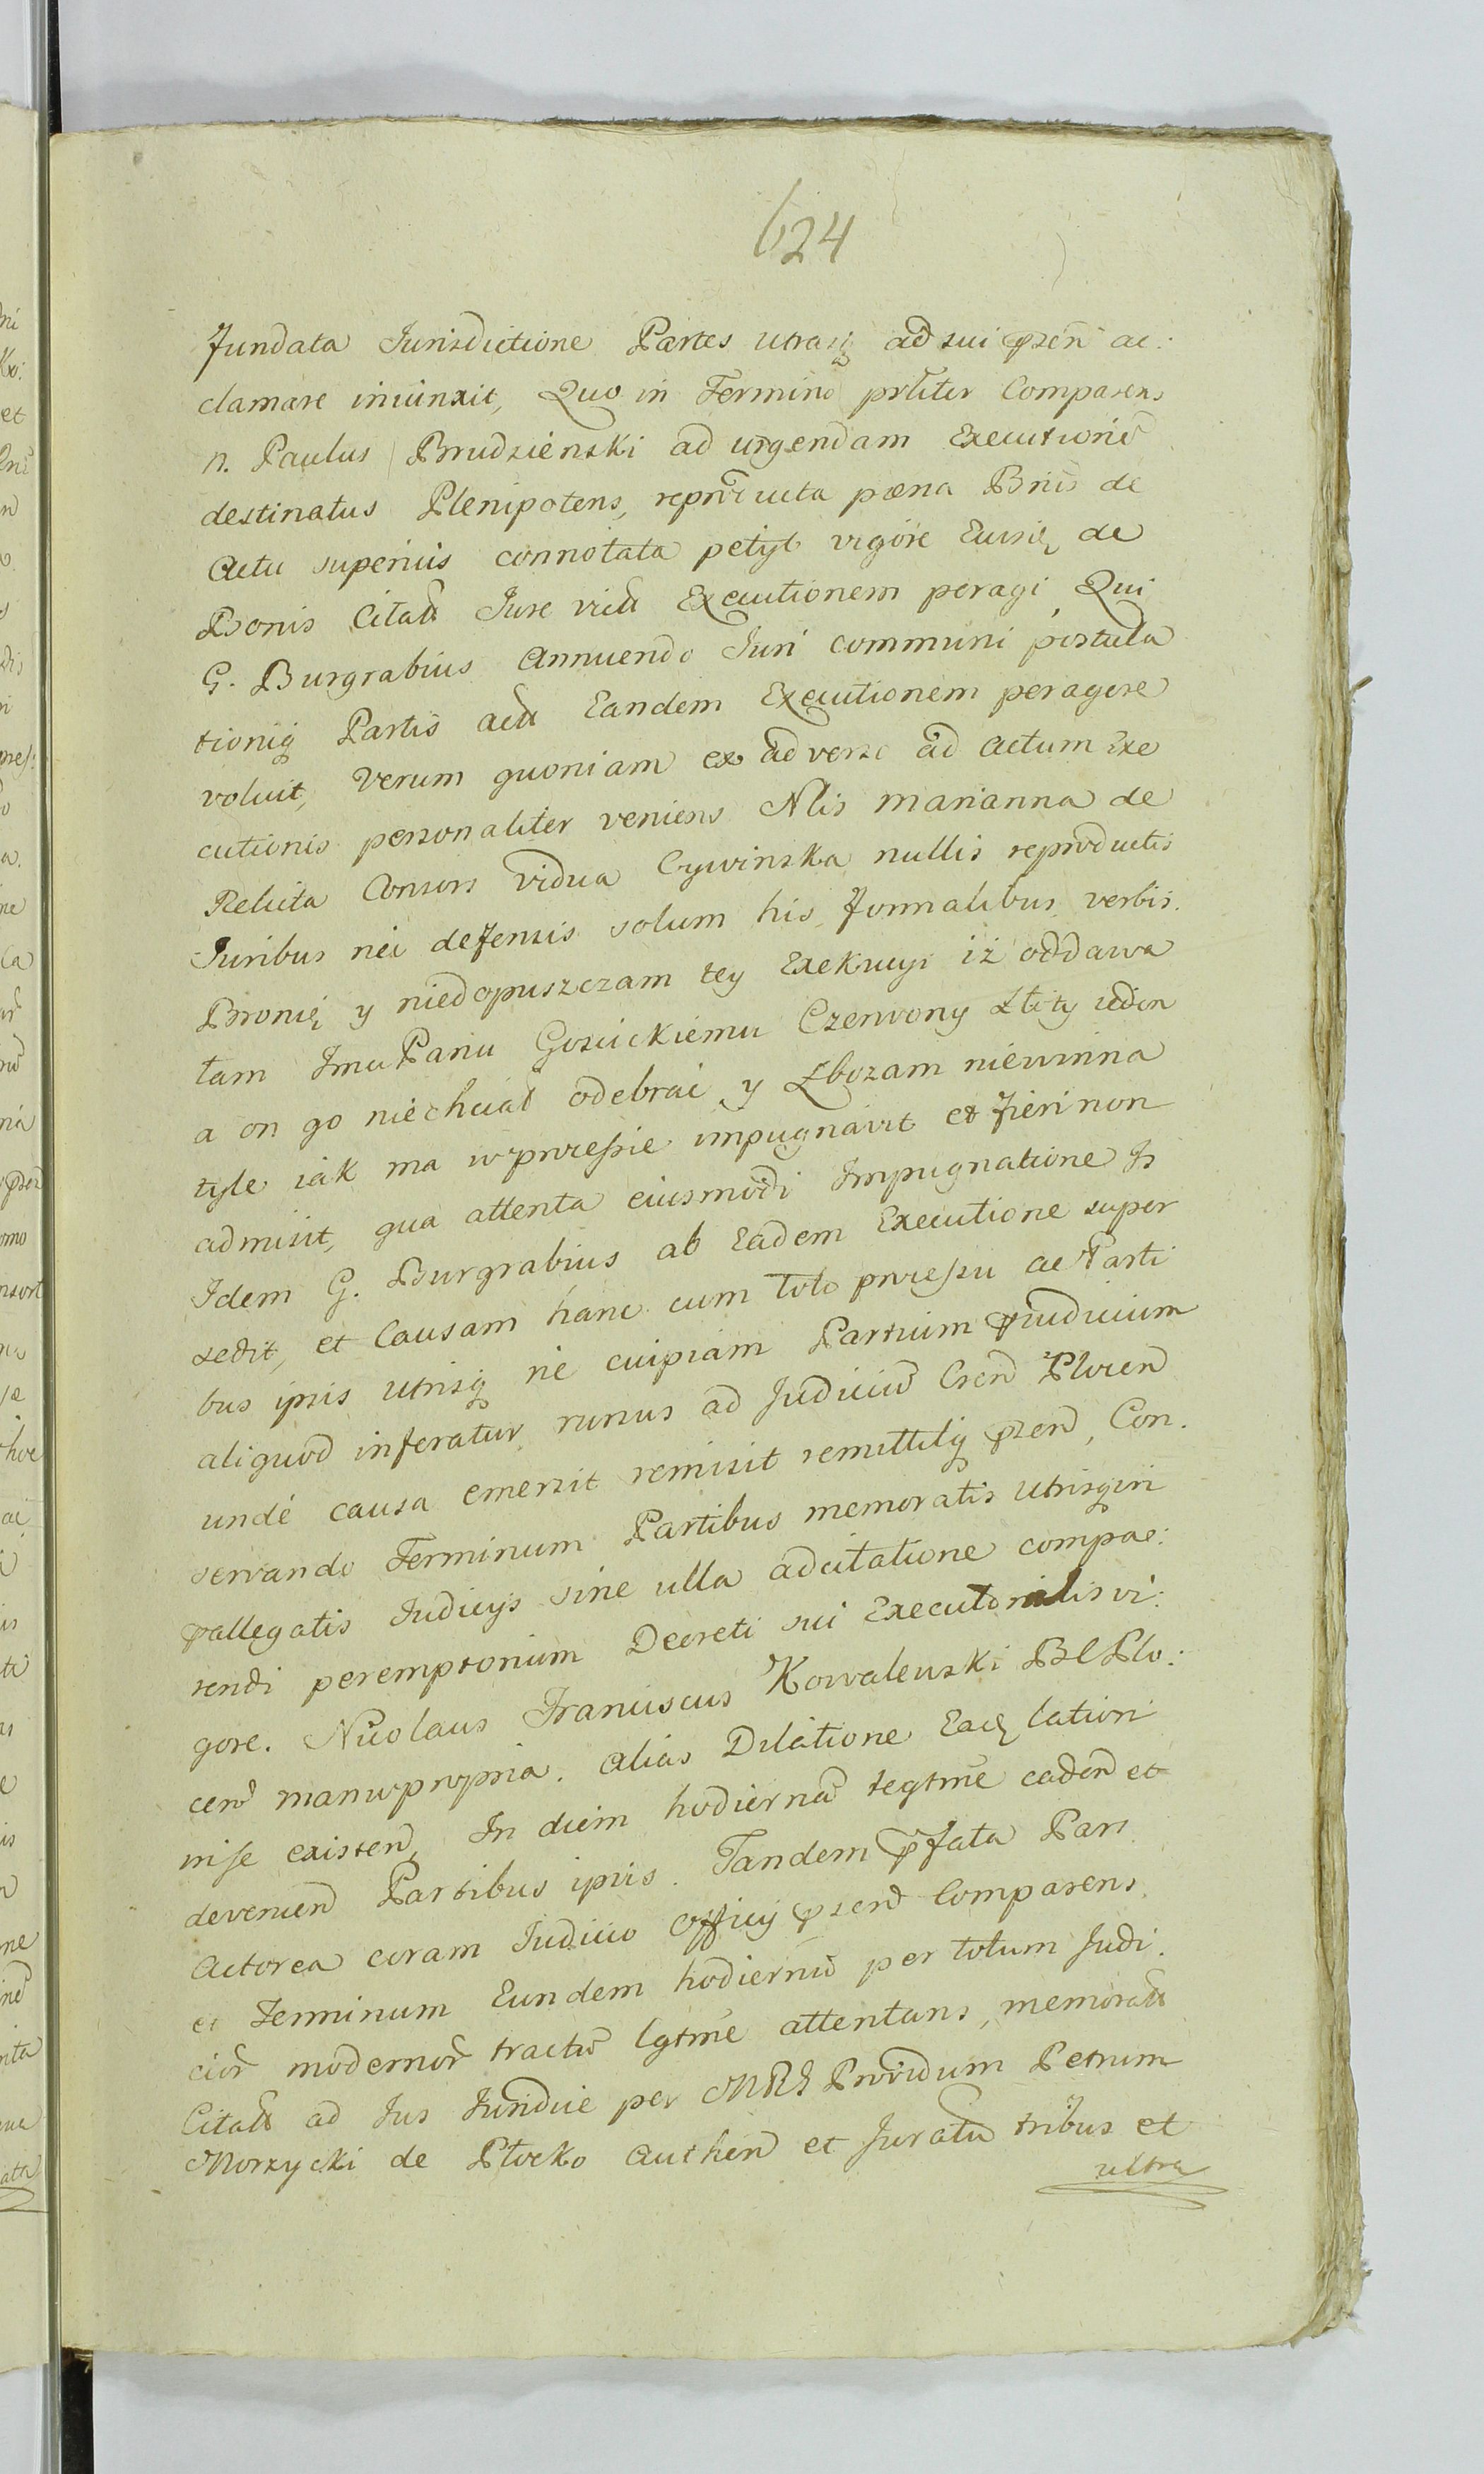 624
fundata Jurisdictione Partes utrasq ad sui psen ac:
clamare iniunxit, Quo in Termino prliter Comparens
n. Paulus Brudzienski ad urgendam Executione
destinatus Plenipotens, reproducta pæna Bnis de
Actu superius connotata petyt vigore Eiusq de
Bonis Citati Jure victi Executionem peragi, Qui
G. Burgrabius Annuendo Juri communi postula
tioniq Partis acti Eandem Executionem peragere
voluit, Verum quoniam ex adverso ad Actum Exe
cutionis personaliter veniens Nlis Marianna de
Relicta Consors Vidua Cywinska nullis reproductis
Juribus nec defensis solum his formalibus verbis.
Bronię y niedopuszczam tey Exekucyi iż oddawa
łam Jmu Panu Gosickiemu Czerwony Złity ieden
a on go niechciał odebrać y Zbozam niewinna
tyle iak ma w processie impugnavit et fieri non
admisit, qua attenta eiusmodi Impugnatione Is
Idem G. Burgrabius ab Eadem Executione super
sedit, et Causam hanc cum toto processu ac Parti
bus ipsis utrisq ne cuipiam Partium pjudicium
aliquod inferatur rursus ad Judiciu Csen Plocen
unde causa emersit remisit remittitq psen, Con.
servando Terminum Partibus memoratis utrisq in
pallegatis Judicijs sine ulla adcitatione compar:
rendi peremptorium Decreti sui Executorialis vi:
gore. Nicolaus Franciscus Kowalewski BC Plo:
cen manu propria. Alias Dilatione Eaq lationi
nise existen, In diem hodierna legtme caden et
devenien Partibus ipsis. Tandem pfata Pars
Actorea coram Judicio Officij psen Comparens
et Terminum Eundem hodiernu per totum Judi.
cior modernor tractu lgtme attentans, memorati
Citati ad Jus Juridice per MRS Providum Petrum
Morzycki de Płocko Authen et Juratu tribus et
ultra